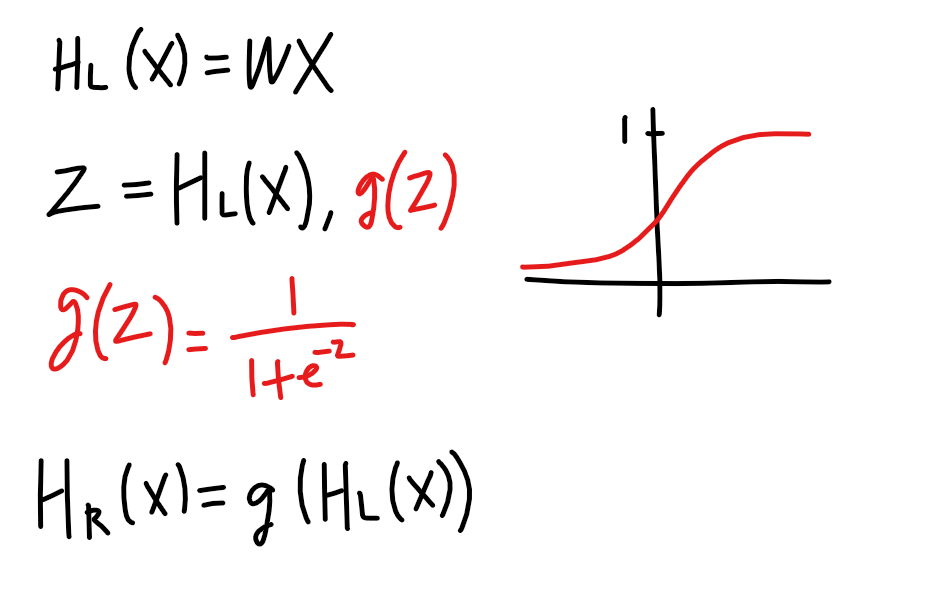 H_L(X) = WX
Z = H_L(X), g(Z)
g(Z) = 1 / (1+e^-z)
H_R(X) = g(H_L(X))
1